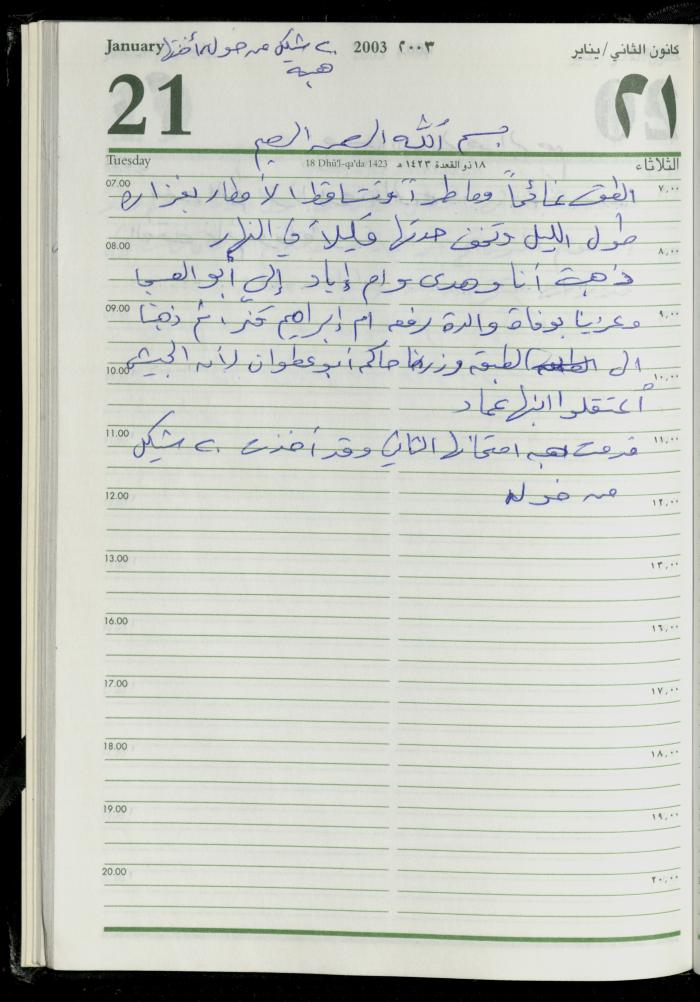 January ٢٠ شيكل من خوله أخذتها 2003 ٢٠٠٣ كانون الثاني/يناير
هبة
21 ٢١
بسم الله الرحمن الرحيم
Tuesday 18 Dhū'l-qa'da 1423 ١٨ ذو القعدة ١٤٢٣ هـ الثلاثاء
07.00 الطقس غائماً وماطراً وتتساقط الأمطار بغزاره ٧,٠٠
طول الليل وتخف حدتها قليلاً في النهار
08.00 ٨,٠٠
ذهبت أنا وهدى وام إياد إلى أبو العسجا
09.00 وعزينا بوفاة والدة رفعه ام إبراهيم ثم ذهبنا ٩,٠٠
الى الطبقه وزرنا حاكمه أبو عطوان لأنه الجيش
10.00 ١٠,٠٠
أعتقلوا ابنها عماد
11.00 قدمت هبه امتحانها الثاني وقد أخذت ٢٠ شيكل ١١,٠٠
من خوله
12.00 ١٢,٠٠
13.00 ١٣,٠٠
16.00 ١٦,٠٠
17.00 ١٧,٠٠
18.00 ١٨,٠٠
19.00 ١٩,٠٠
20.00 ٢٠,٠٠